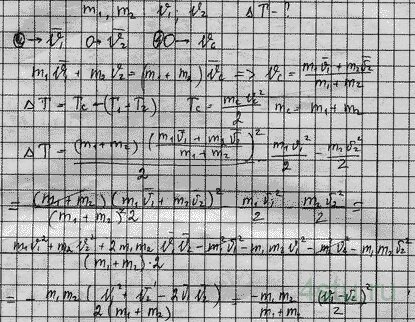 m₁, m₂ v₁, v₂ ΔT - ?
→ v̄₁ O→ v̄₂ O → v_c
m₁v̄₁ + m₂v̄₂ = (m₁ + m₂) v̄_c => v_c = (m₁v̄₁ + m₂v̄₂)/(m₁ + m₂)
ΔT = T_c - (T₁ + T₂) T_c = m_c v_c²/2 m_c = m₁ + m₂
ΔT = (m₁ + m₂) ((m₁v̄₁ + m₂v̄₂)/(m₁ + m₂))²/2 - m₁v̄₁²/2 - m₂v̄₂²/2
= (m₁ + m₂)(m₁v̄₁ + m₂v̄₂)²/((m₁ + m₂)² 2) - m₁v̄₁²/2 - m₂v̄₂²/2 =
(m₁²v₁² + m₂²v₂² + 2m₁m₂ v̄₁v̄₂ - m₁²v̄₁² - m₁m₂v₁² - m₂²v₂² - m₁m₂v̄₂²)/((m₁ + m₂)·2)
= - m₁m₂ (v₁² + v₂² - 2v̄₁v̄₂)/(2(m₁ + m₂)) = -m₁m₂/(m₁ + m₂) (v̄₁ - v̄₂)²/2